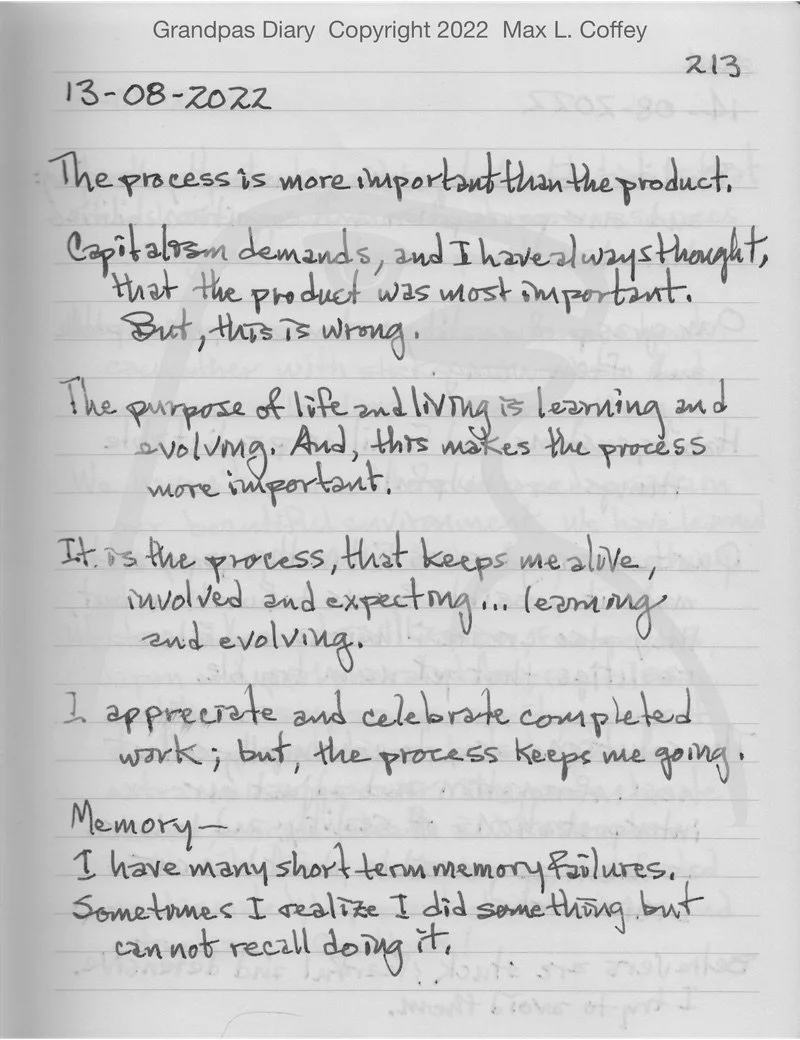 Grandpas Diary Copyright 2022 Max L. Coffey
213
13-08-2022
The process is more important than the product.
Capitalism demands, and I have always thought,
that the product was most important.
But, this is wrong.
The purpose of life and living is learning and
evolving. And, this makes the process
more important.
It is the process, that keeps me alive,
involved and expecting... learning
and evolving.
I appreciate and celebrate completed
work; but, the process keeps me going.
Memory—
I have many short term memory failures.
Sometimes I realize I did something but
can not recall doing it.